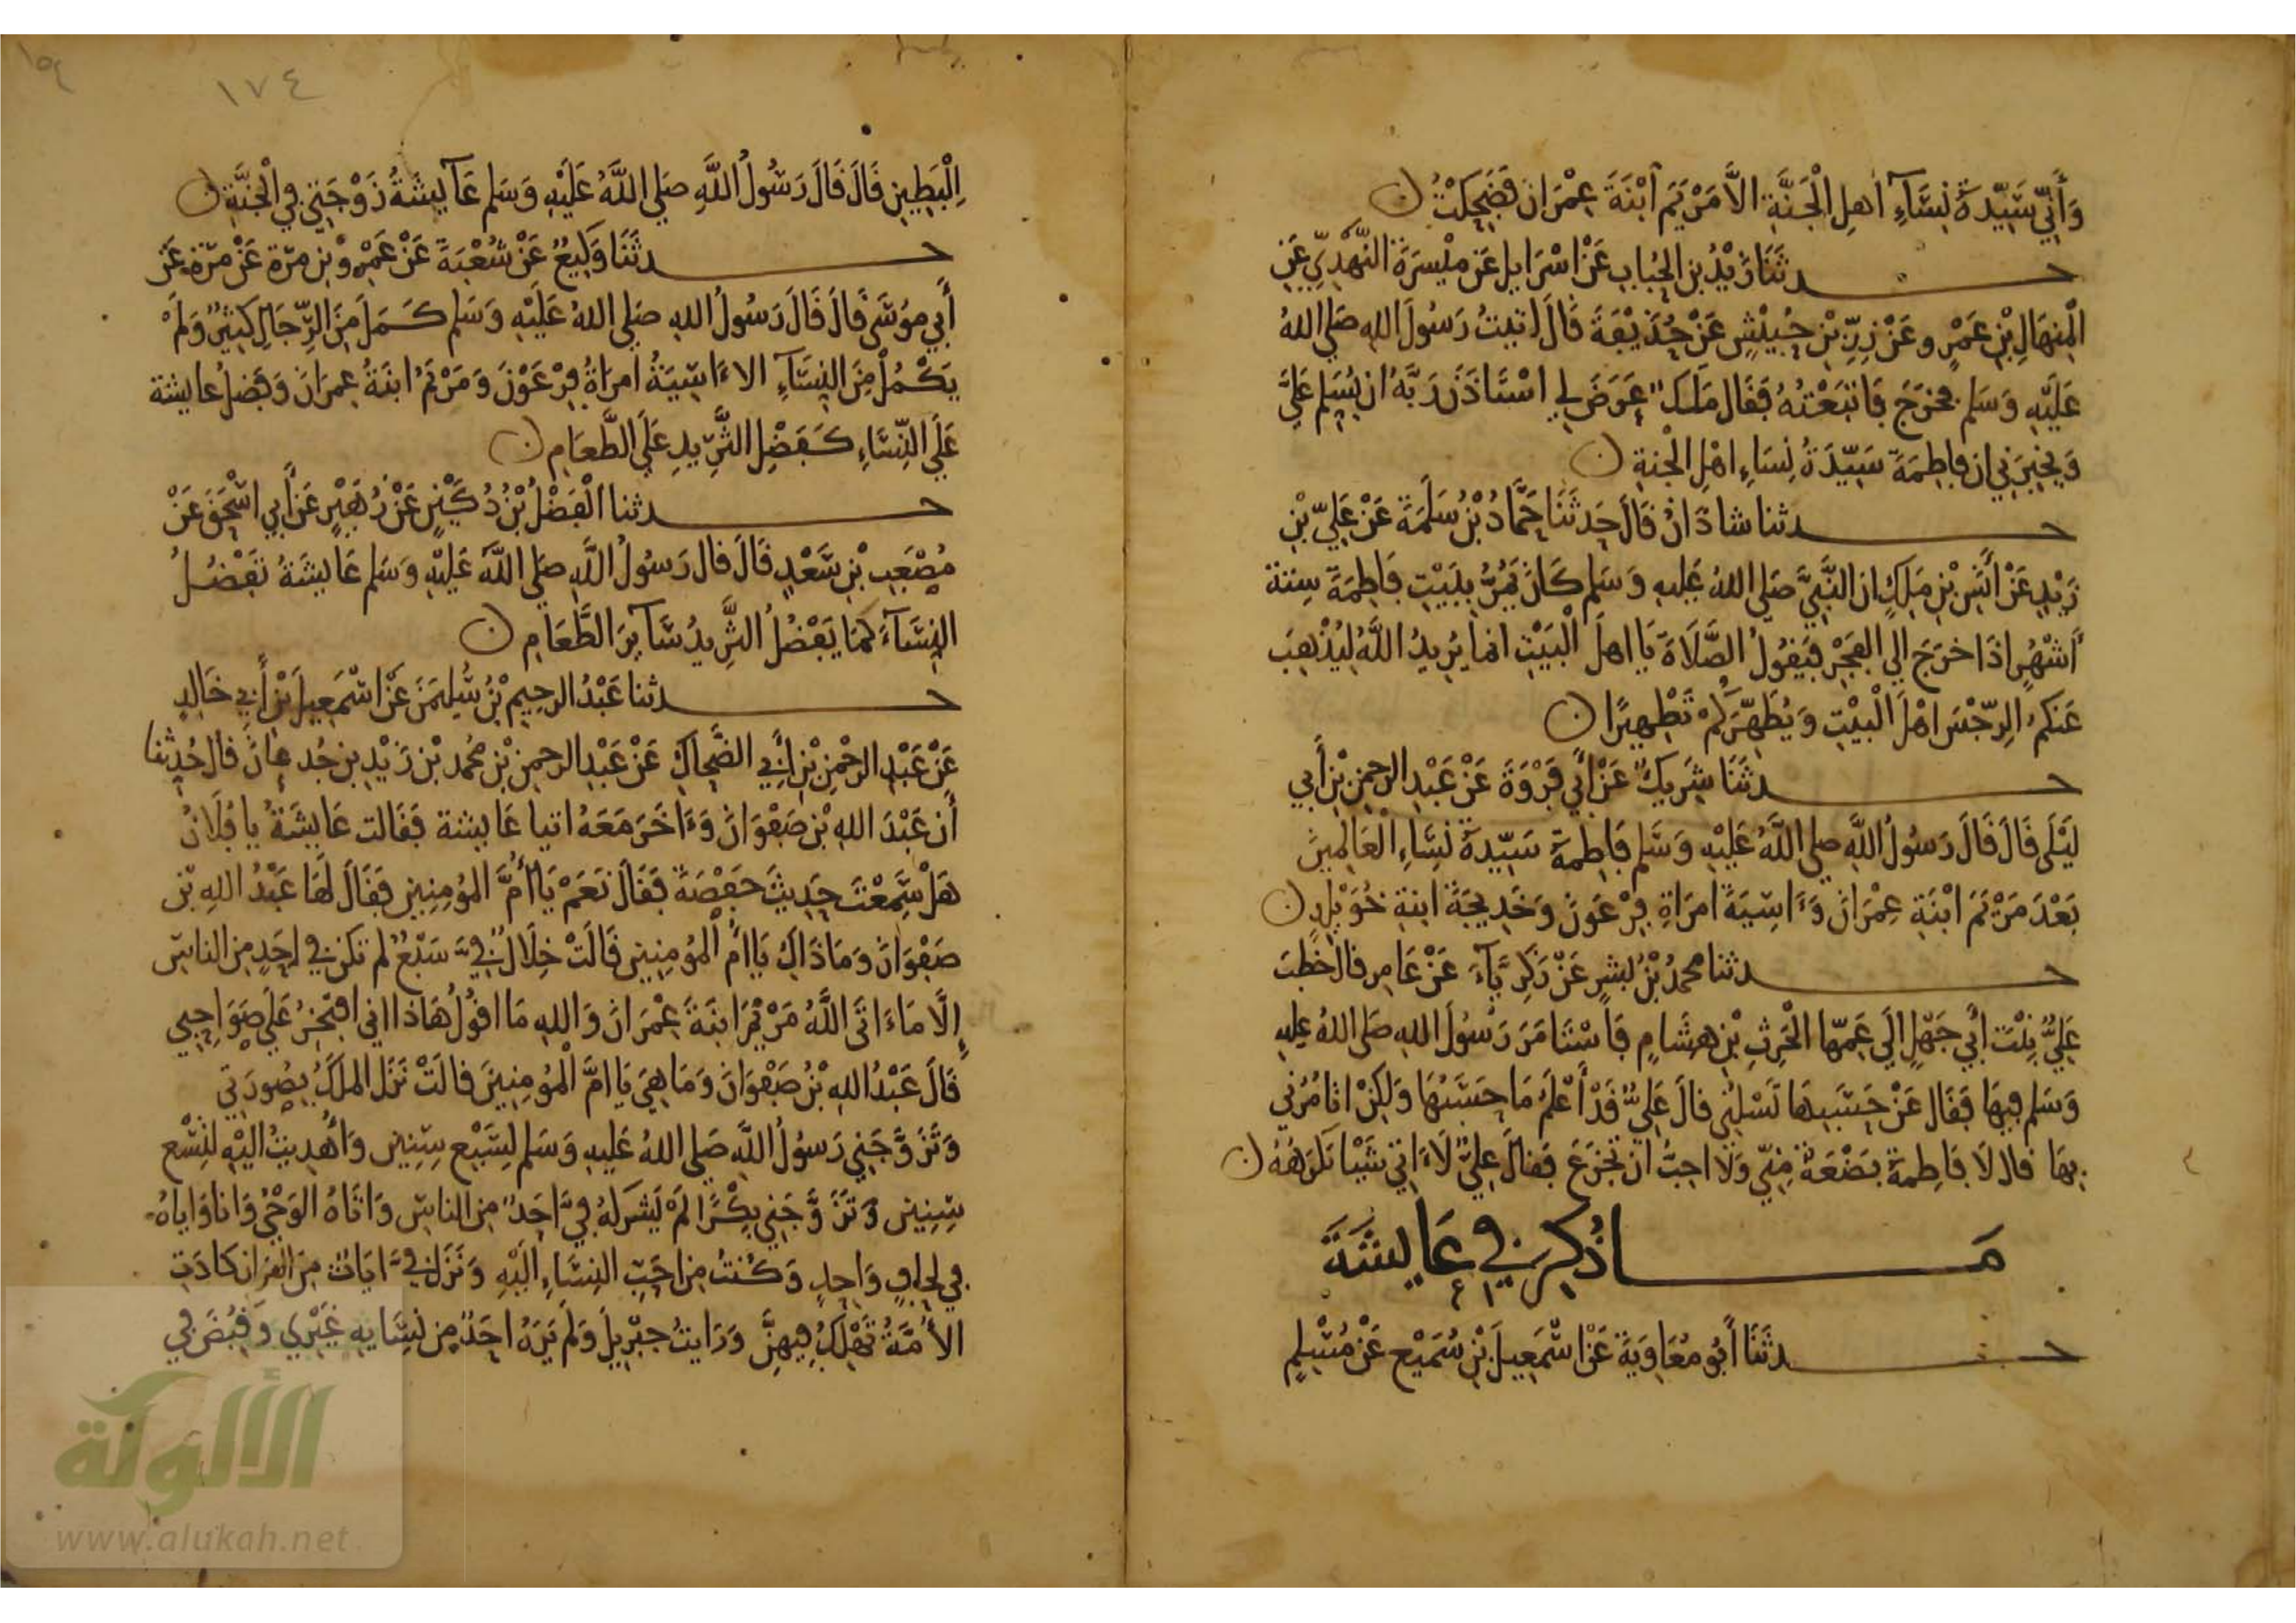 وَأَنِّي سَيِّدَةُ نِسَآءِ أهلِ الْجَنَّةِ الاَّ مَرْيَمَ ابْنَةَ عِمْرَانَ فَضَحِكْتُ ن
حدثَنَا زَيْدُ بن الحُبابِ عَنْ اسْرَايِل عَن مَيْسَرَةَ النَّهْدِيِّ عَنِ
الْمِنهَالِ بْنِ عَمْرٍو عَنْ زِرِّ بْنِ حُبَيْشٍ عَنْ حُذَيْفَةَ قَالَ اتيتُ رَسُولَ اللهِ صَلى اللهُ
عَلَيْهِ وَسَلم فخرَجَ فَاتبَعْتُهُ فقَال مَلَكٌ عَرَضَ لِي اسْتَاذَنَ رَبَّهُ ان يُسَلِم عَليَّ
وَيخبِرَنِي ان فاطِمَةَ سَيِّدَةُ نِسَاءِ اهْلِ الْجنةِ ن
حدثنا شاذَانُ قَالَ حَدثَنَا حَمَّادُ بْنُ سَلَمَةَ عَنْ عَلِيِّ بْنِ
زَيْدٍ عَنْ أَنَسِ بْنِ مَلِكٍ ان النَّبِيَّ صَلى اللهُ عَليهِ وَسَلم كَانَ يَمُرُّ بِبَيْتِ فَاطِمَةَ ستة
أَشْهُرٍ اذَا خرَجَ الى الفَجْرِ فيَقُولُ الصَّلَاةَ يَا اهلَ الْبَيْتِ انما يُرِيدُ اللَّهُ لِيُذْهِبَ
عَنكمُ الرِّجْسَ اهْلَ الْبَيْتِ وَيُطَهِّرَكُمْ تَطْهِيرًا ن
حدثَنَا شَرِيكٌ عَنْ أَبِي فَرْوَةَ عَنْ عَبْدِ الرحمنِ بْنِ أبي
لَيْلَى قَالَ قَالَ رَسُولُ اللَّهِ صلى اللَّهُ عَلَيْهِ وَسَّلم فَاطِمَة سَيِّدةُ نِسَاءِ الْعَالَمِينَ
بَعْدَ مَرْيَمَ ابْنَةِ عِمْرَانَ وَءَاسِيَةَ امرَاةِ فِرْعَونَ وَخَدِيجَةَ ابنةِ خُوَيْلِدٍ ن
حدثنا محمدُ بْنُ بشرٍ عَنْ زَكرِيَّآءَ عَنْ عَامِرٍ قالَ خَطَبَ
عَلِيٌّ بِنْتَ أَبِي جَهْلٍ الَى عَمِّهَا الْحَرِثِ بْنِ هشَامٍ فَاسْتَامَرَ رَسُولَ اللهِ صَلى اللهُ عليهِ
وَسَلم فِيهَا فَقَال عَنْ حَسَبِهَا تَسْلُنِي قالَ عَلِيٌّ قَدْ أَعْلَمُ مَا حَسَبُهَا وَلَكِنْ اتامُرُنِي
بِهَا قال لَا فَاطِمَةُ بَضْعَةٌ مِنِّي وَلَا احِبُّ ان تجْزَعَ فَقالَ عَلِيٌّ لَا ءَاتِي شَيْا تَكرَهُهُ ن
مَا ذُكِرَ فِي عَايشَةَ
حدثَنَا أَبُو مُعَاوِيَةَ عَنْ اسْمَعِيلَ بْنِ سُمَيْعٍ عَنْ مُسْلِمٍ
١٧٤
الْبَطِينِ قَالَ قَالَ رَسُولُ اللَّهِ صَلى اللَّهُ عَلَيْهِ وَسَلم عَآيشَةُ زَوْجَتِي فِي الْجَنَّةِ ن
حدثَنَا وَكِيعٌ عَنْ شُعْبَةَ عَنْ عَمْرِو بْنِ مرّة عَنْ مرّةَ عَنْ
أَبِي مُوسَى قَالَ قَالَ رَسُولُ اللهِ صَلى اللهُ عَلَيْهِ وَسَلم كَمَلَ مِنَ الرِّجَالِ كَثِيرٌ وَلَمْ
يَكْمُلْ مِنَ النِسَآءِ الا ءَاسِيَةُ امرَاةُ فِرْعَوْنَ وَمَرْيَمُ ابنَةُ عِمرَانَ وَفَضلُ عايشة
عَلَى النِّسَاءِ كَفَضْلِ الثَّرِيدِ عَلَى الطَّعَامِ ن
حدثنا الْفَضْلُ بْنُ دُكَيْنٍ عَنْ زُهَيْرٍ عَنْ أَبِي اسْحَقَ عَنْ
مُصْعَبِ بْنِ سَعْدٍ قَالَ قال رَسُولُ اللَّهِ صَلى اللَّهُ عَلَيْهِ وَسَلم عَايشَةُ تَفْضُلُ
النِسَآءَ كَمَا يَفْضُلُ الثَّرِيدُ سَآيرَ الطَّعَامِ ن
حدثنا عَبْدُ الرحِيمِ بْنُ سُلَيمَنَ عَنْ اسْمَعِيلَ بْنِ أَبِي خَالِدٍ
عَنْ عَبْدِ الرحْمنِ بْنِ أَبِي الضَّحاكِ عَنْ عَبْدِ الرحمنِ بْنِ محُمدِ بْنِ زَيْدِ بنِ جُدعانَ قالَ حُدِثنا
أَن عَبْدَ اللهِ بْنَ صَفْوَانَ وَءَاخَرَ مَعَهُ اتيا عَايشة فَقَالت عَايشَةُ يا فُلَانُ
هَلْ سَمِعْتَ حَدِيثَ حَفْصَةَ فَقَالَ نَعَمْ يَا أُمَّ المُومِنِينَ فقَالَ لَهَا عَبْدُ اللهِ بْن
صَفْوَانَ وَمَا ذَاكِ يَا امَّ الْمُومِنِينَ قَالَتْ خِلَالٌ فِيَّ سَبْعٌ لم تكن فِي احَدٍ مِن الناسِ
إِلَّا مَا ءَاتَى اللَّهُ مَرْيَمَ ابنَةَ عِمْرَانَ وَاللهِ مَا اقُولُ هَاذَا اني افتَخِرُ عَلَى صَوَاحِبِي
قَالَ عَبْدُ اللهِ بْنُ صَفْوَانَ وَمَا هِيَ يَا امَّ الْمُومِنِينَ قالَتْ نَزَل الملَكُ بِصُورَتِي
وَتَزَوَّجَنِي رَسُولُ اللَّهِ صَلى اللهُ عَليهِ وَسَلم لِسَبْعِ سِنِينَ وَأُهْدِيتُ الَيْهِ لِتِسْعِ
سِنِينَ وَتَزَوَّجَنِي بِكْرًا لَمْ يَشركهُ فِيَّ احَدٌ مِن الناسِ وَاتَاهُ الوَحْيُ وَانا وَاياهُ
فِي لِحافٍ وَاحِدٍ وَكُنتُ مِن احَبِّ النِسَاءِ الَيْهِ وَنَزَلَ فِيَّ ءَايَاتٌ مِنَ القرَانِ كادَتِ
الأُمَّةُ تَهْلَكُ فِيهِنَّ وَرَايتُ جِبْرِيلَ وَلَم يَرَهُ احَدٌ مِن نِسَايهِ غَيْرِي وَقُبِضَ فِي
الألوكة
www.alukah.net